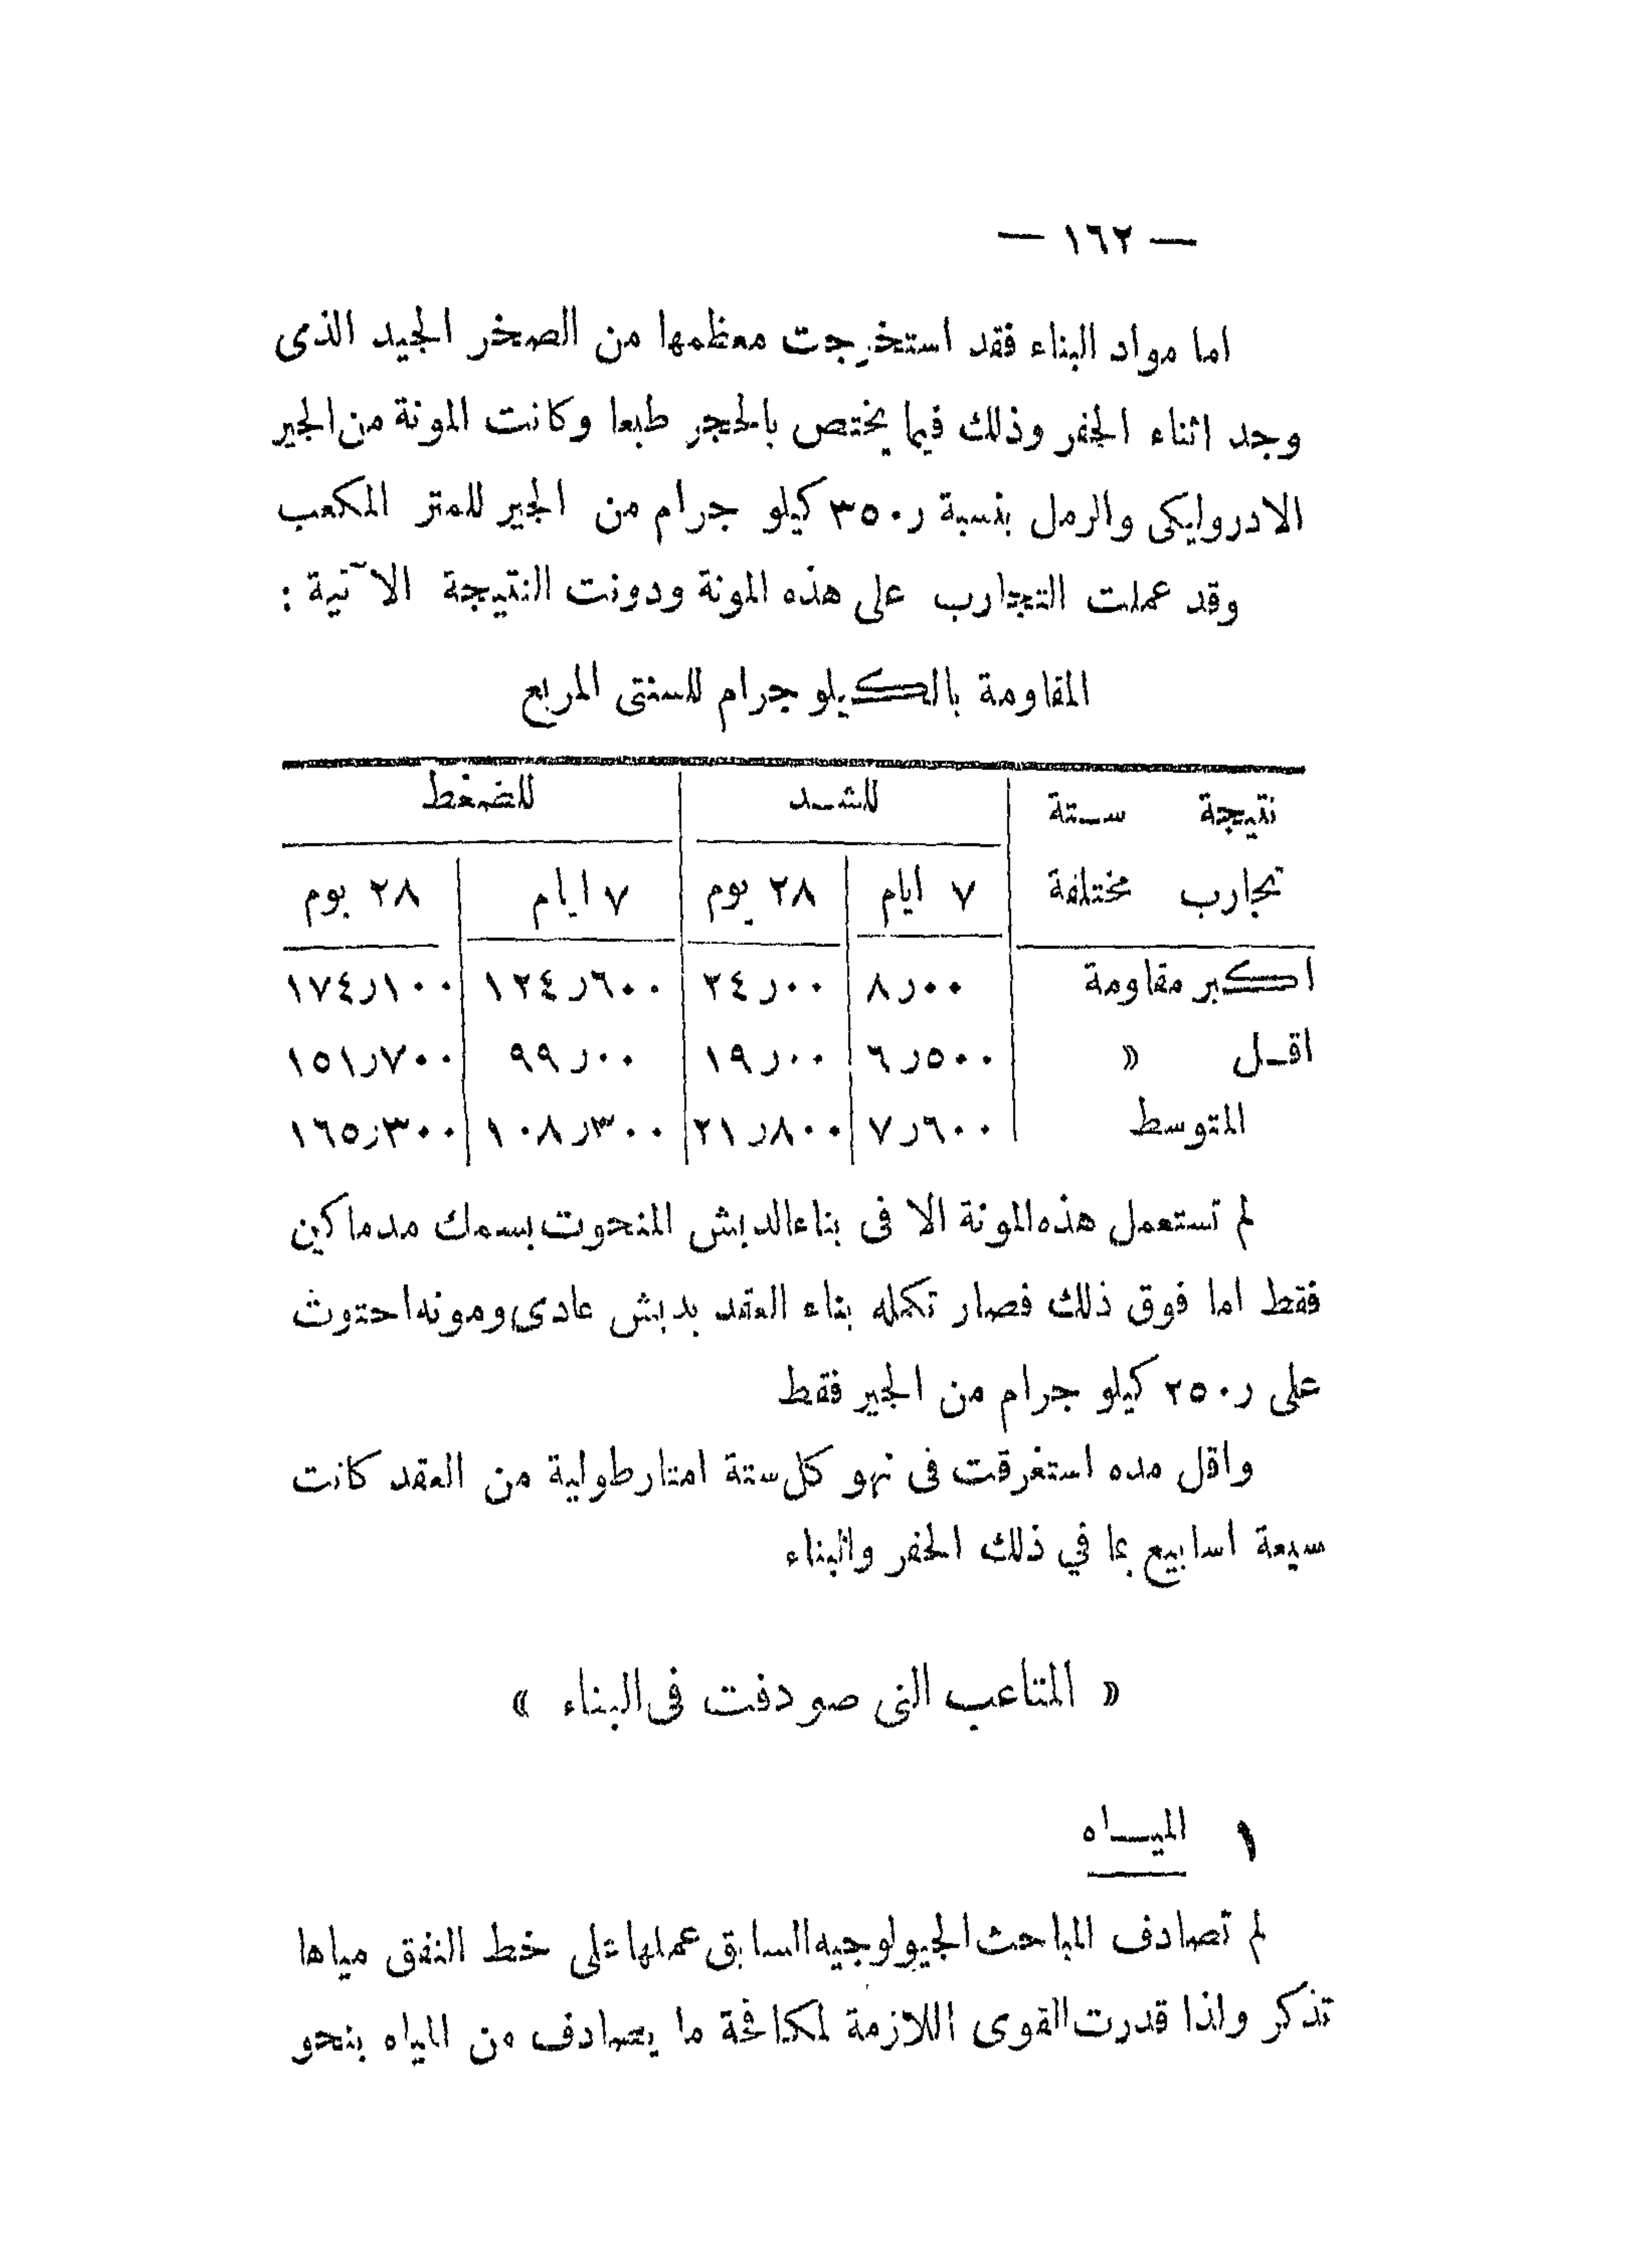 — ١٦٢ —
اما مواد البناء فقد استخرجت معظمها من الصخر الجيد الذى
وجد اثناء الحفر وذلك فيما يختص بالحجر طبعا وكانت المونة من الجير
الادروليكى والرمل بنسبة ر٣٥٠ كيلو جرام من الجير للمتر المكعب
وقد عملت التجارب على هذه المونة ودونت النتيجة الآتية :
المقاومة بالكيلو جرام للسنتى المربع
نتيجة ستة للشد للضغط
تجارب مختلفة ٧ ايام ٢٨ يوم ٧ ايام ٢٨ يوم
اكبر مقاومة ٨ر٠٠ ٢٤ر٠٠ ١٢٤ر٦٠٠ ١٧٤ر١٠٠
اقل » ٦ر٥٠٠ ١٩ر٠٠ ٩٩ر٠٠ ١٥١ر٧٠٠
المتوسط ٧ر٦٠٠ ٢١ر٨٠٠ ١٠٨ر٣٠٠ ١٦٥ر٣٠٠
لم تستعمل هذه المونة الا فى بناء الدبش المنحوت بسمك مدماكين
فقط اما فوق ذلك فصار تكمله بناء العقد بدبش عادى ومونه احتوت
على ر٢٥٠ كيلو جرام من الجير فقط
واقل مده استغرقت فى نهو كل ستة امتار طولية من العقد كانت
سبعة اسابيع بما في ذلك الحفر والبناء
« المتاعب التى صودفت فى البناء »
١ المياه
لم تصادف المباحث الجيولوجيه السابق عملها على خط النفق مياها
تذكر ولذا قدرت القوى اللازمة لمكافحة ما يصادف من المياه بنحو